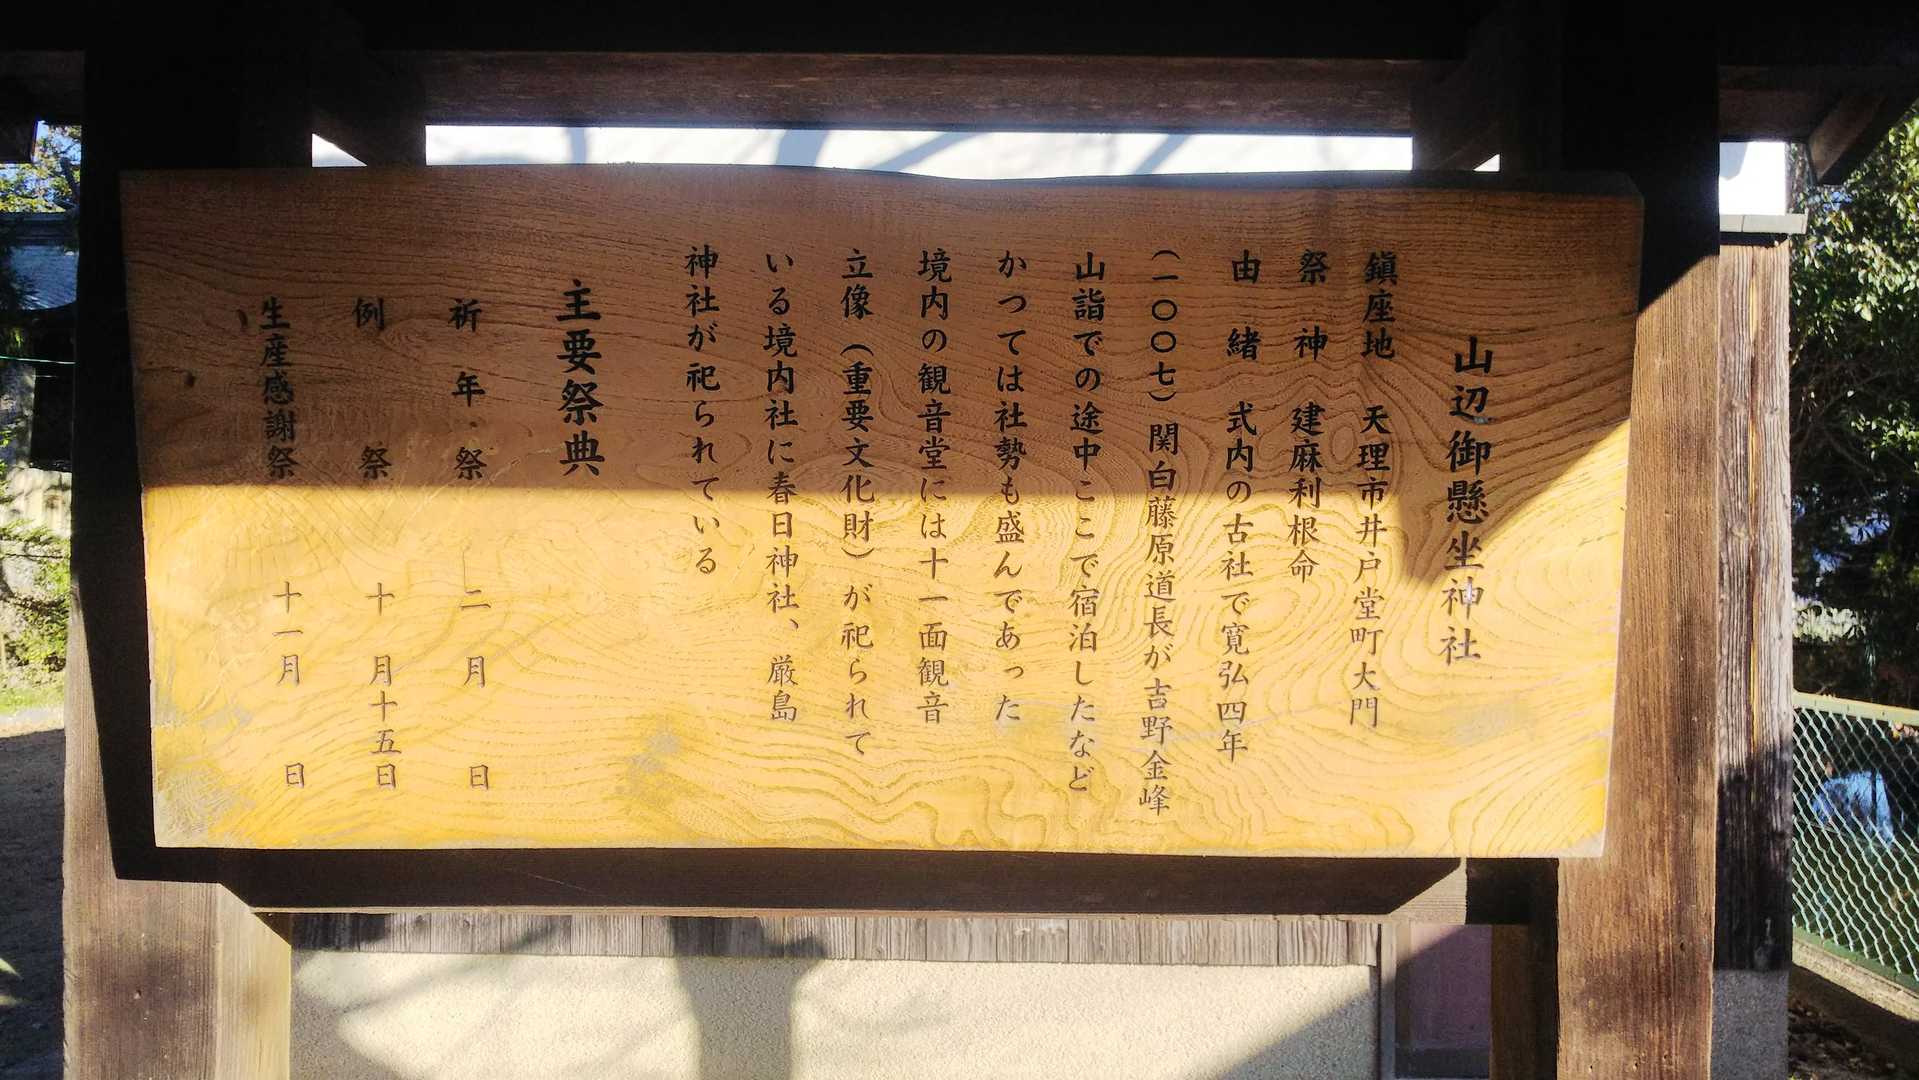 山辺御懸坐神社
鎭座地 天理市井戸堂町大門
祭神 建麻利根命
由緒 式内の古社で寛弘四年
（一〇〇七）関白藤原道長が吉野金峰
山詣での途中ここで宿泊したなど
かつては社勢も盛んであった
境内の観音堂には十一面観音
立像（重要文化財）が祀られて
いる境内社に春日神社、厳島
神社が祀られている
主要祭典
祈年祭 二月 日
例祭 十月十五日
生産感謝祭 十一月 日